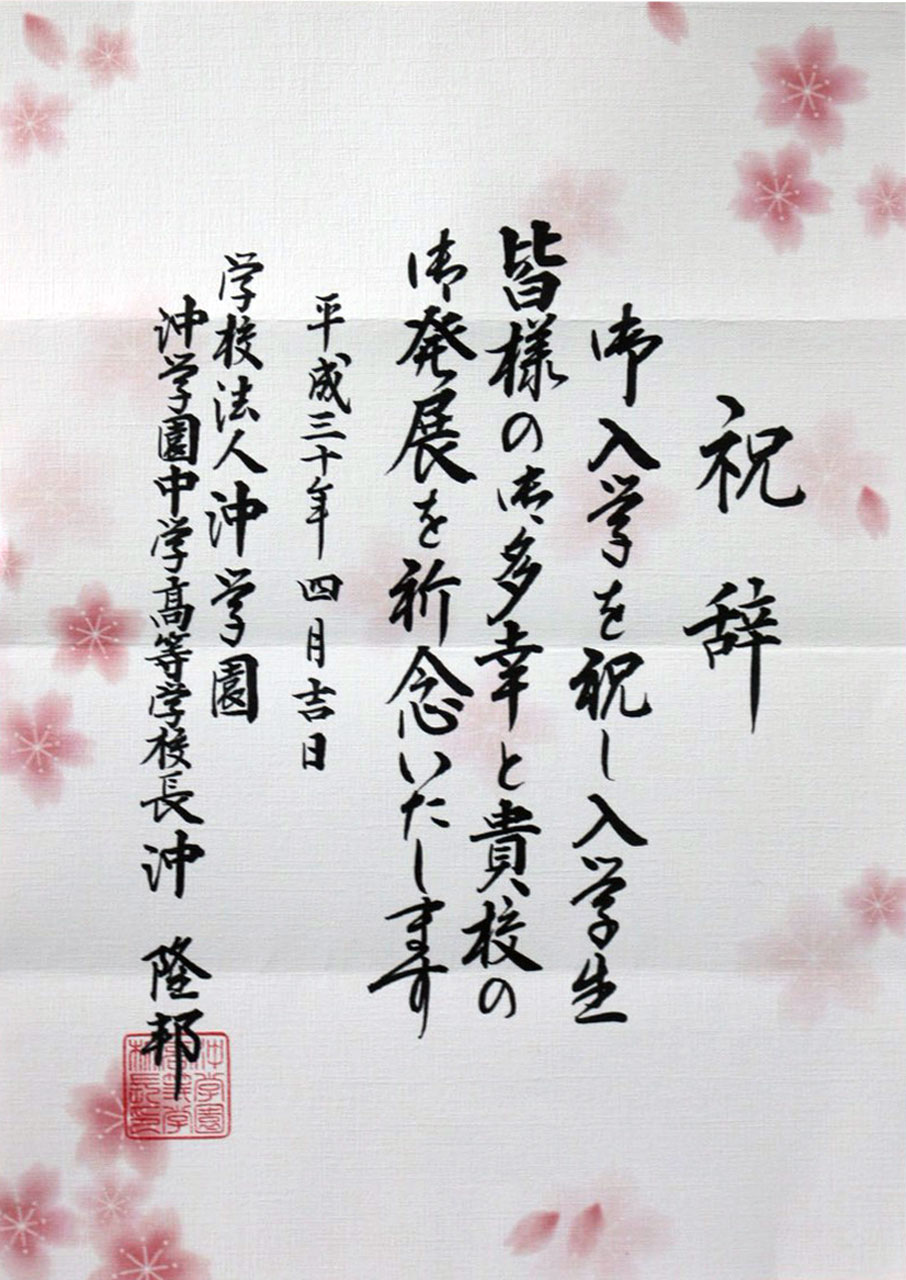 祝辞
御入学を祝し入学生
皆様の御多幸と貴校の
御発展を祈念いたします
平成三十年四月吉日
学校法人沖学園
沖学園中学高等学校長沖隆邦